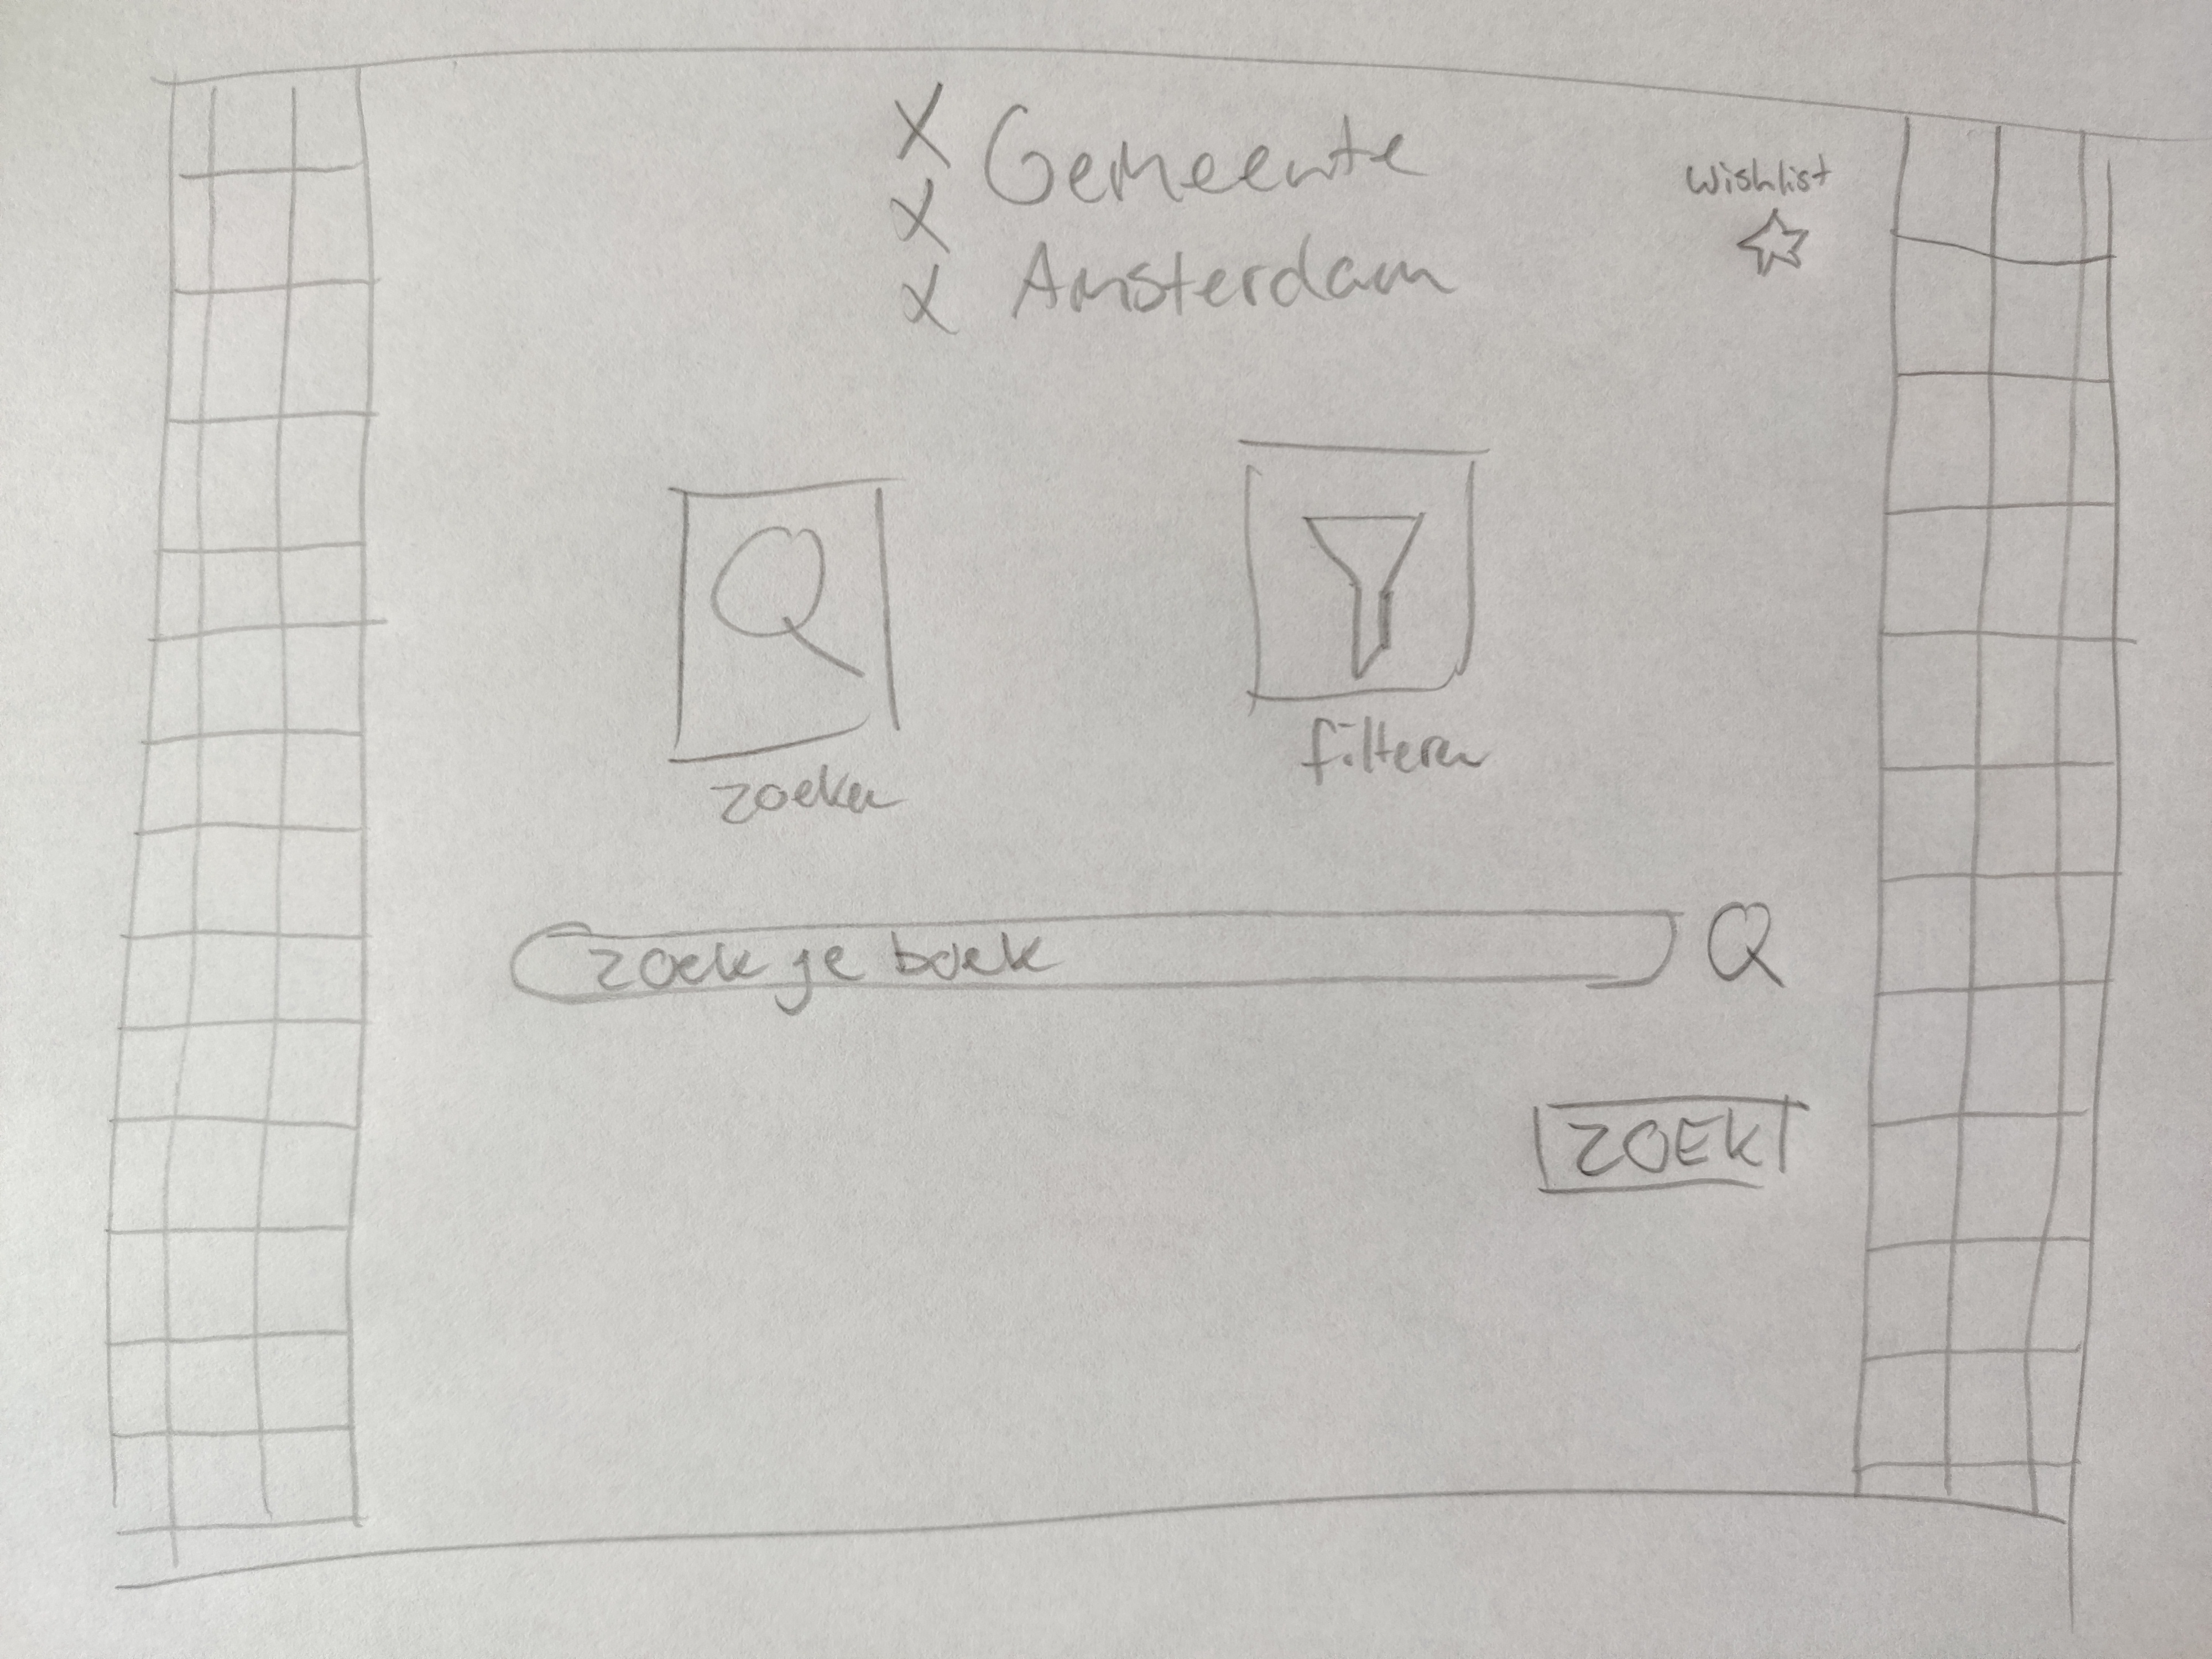 X
X
X
Gemeente
Amsterdam
Wishlist
zoeken
filteren
zoek je boek
ZOEK